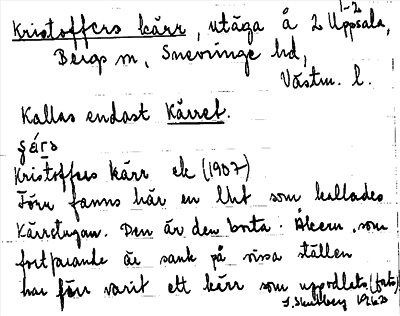 Kristoffers kärr, utäga å 2 Uppsala, 1-2
Bergs sn, Snevringe hd,
Västm. l.
Kallas endast Kärret.
Kristoffers kärr ek (1907)
Förr fanns här en lht som kallades
Kärrstugan. Den är den borta. Åkern, som
fortfarande är sank på vissa ställen
har förr varit ett kärr som uppodlats. (foto)